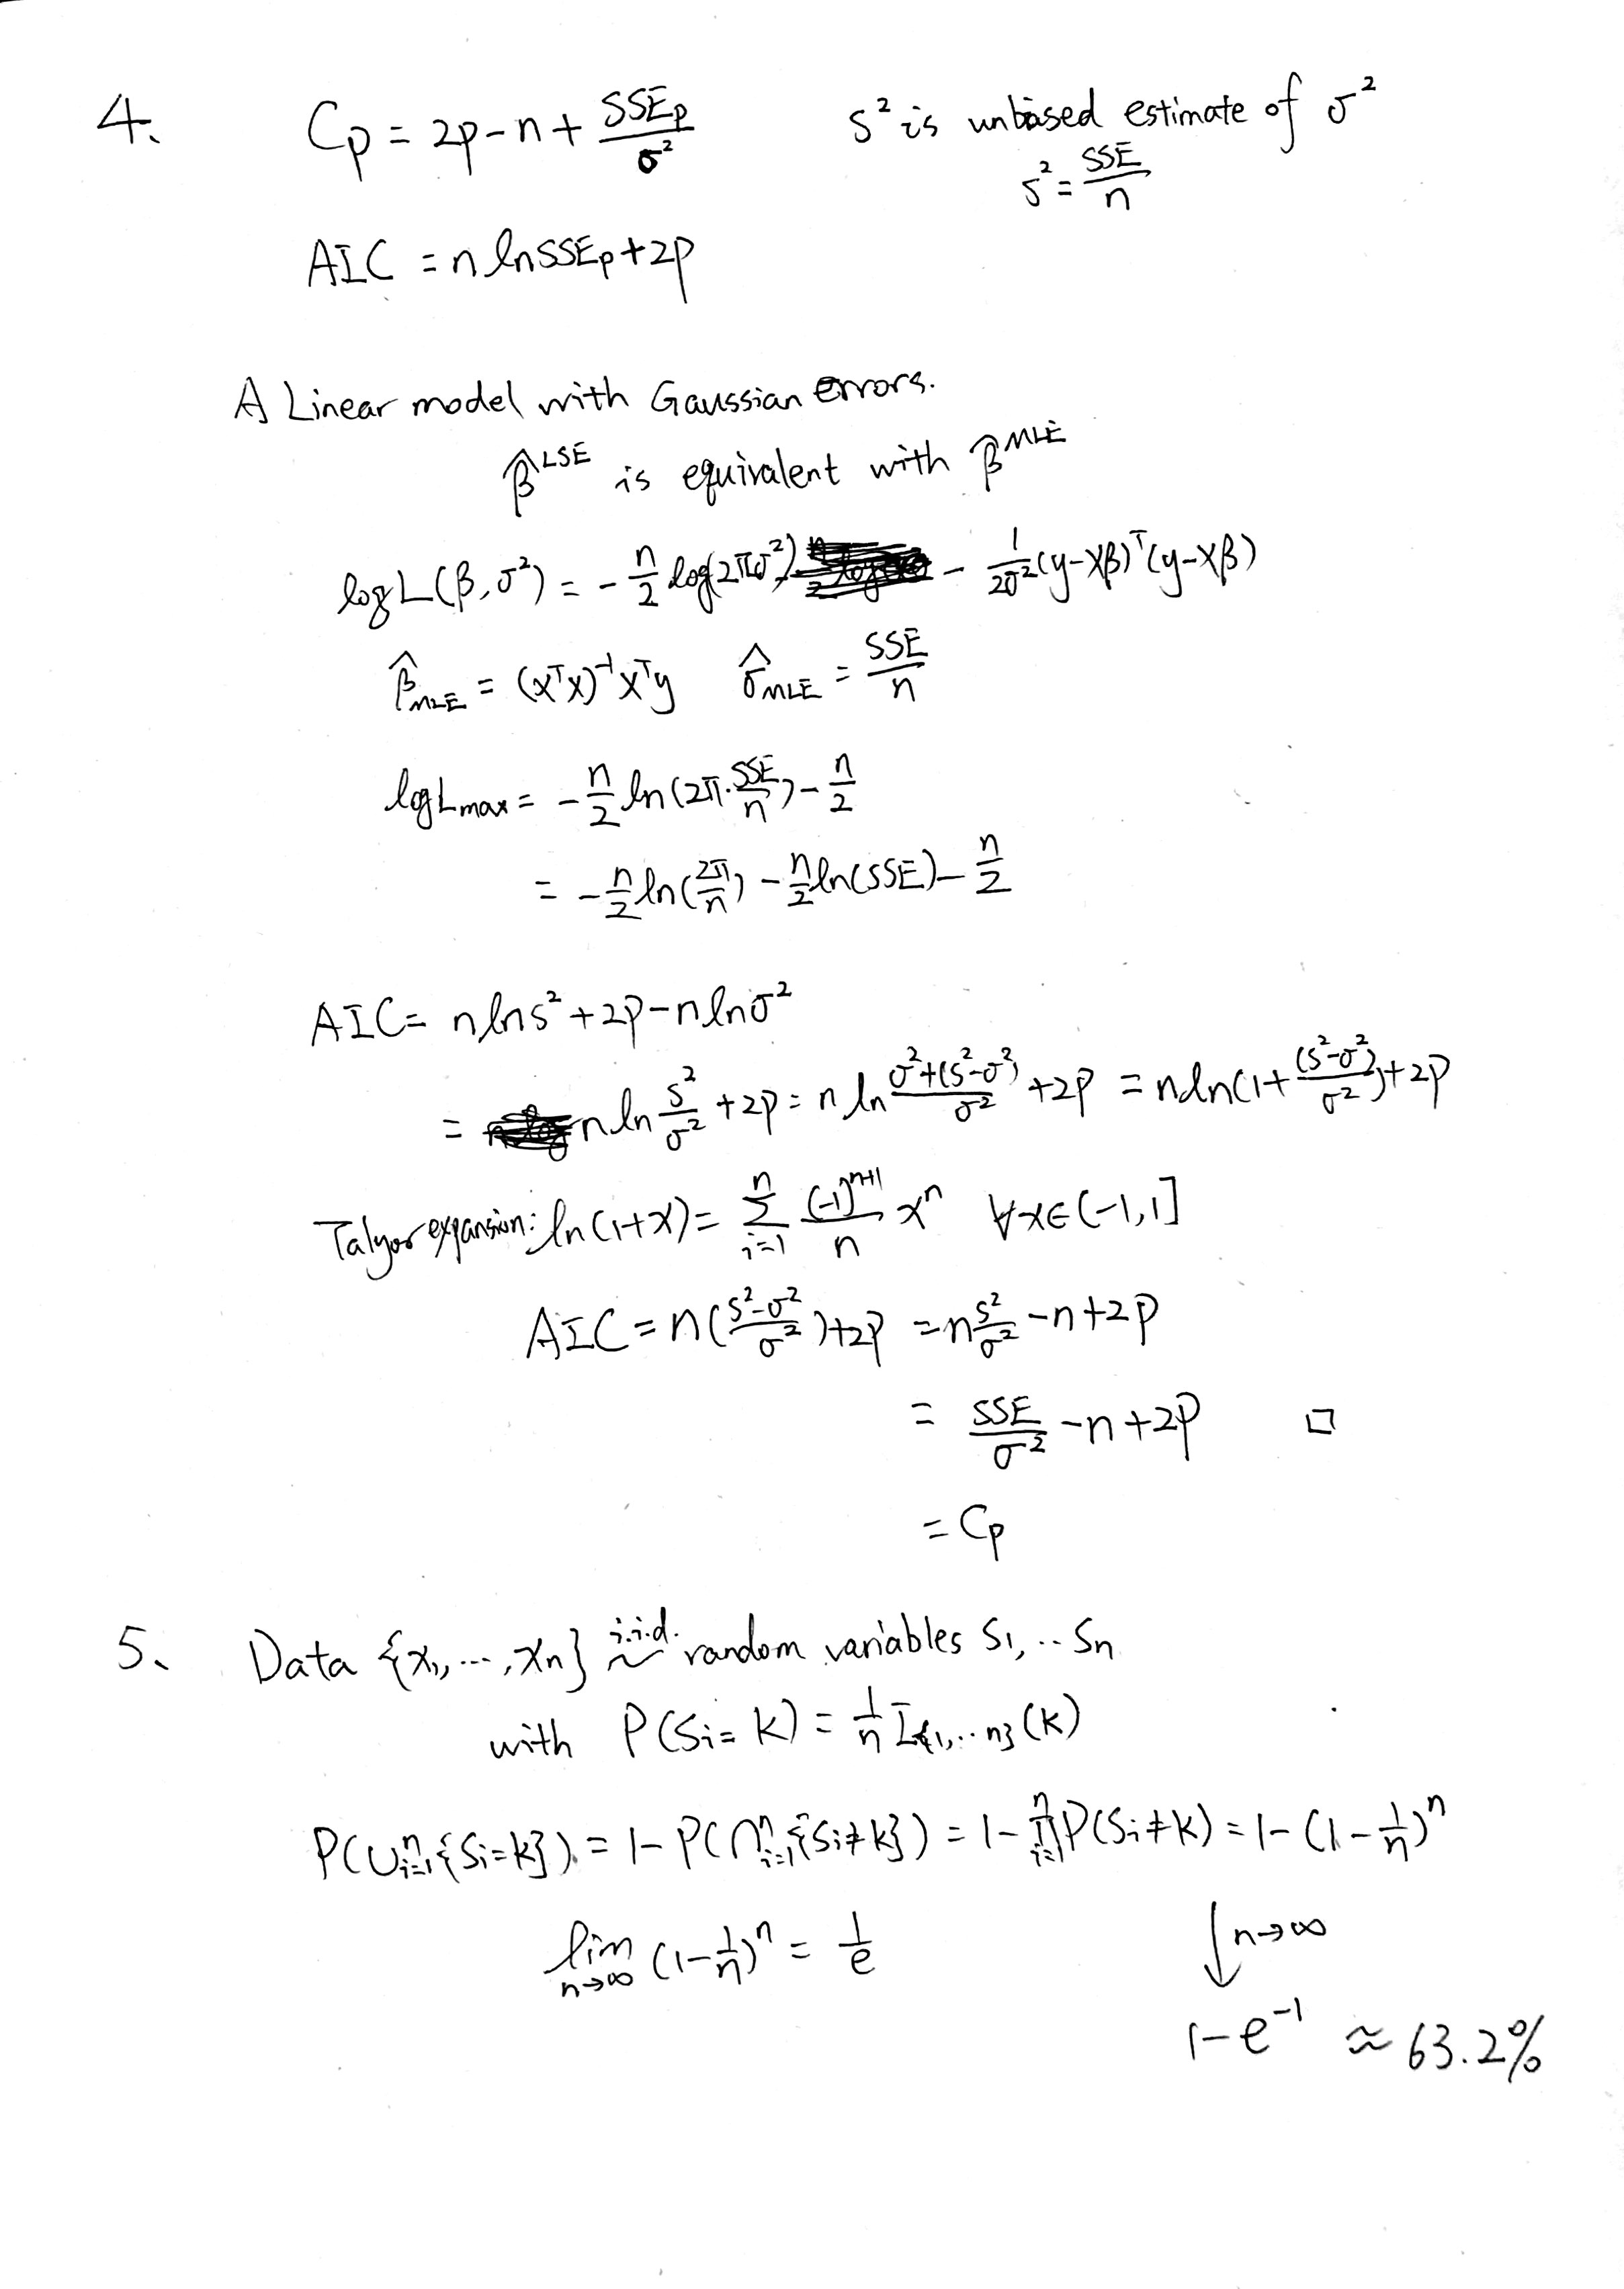 4. Cp = 2p-n+ SSEp/σ² s² is unbiased estimate of σ²
s² = SSE/n
AIC = n ln SSEp+2p
A Linear model with Gaussian errors.
β̂^LSE is equivalent with β̂^MLE
log L(β, σ²) = - n/2 log(2πσ²) - 1/2σ² (y-Xβ)ᵀ(y-Xβ)
β̂_MLE = (XᵀX)⁻¹Xᵀy σ̂_MLE = SSE/n
log L max = - n/2 ln(2π·SSE/n) - n/2
= - n/2 ln(2π/n) - n/2 ln(SSE) - n/2
AIC = n ln s² + 2p - n ln σ²
= n ln s²/σ² + 2p = n ln (σ²+(s²-σ²))/σ² + 2p = n ln(1+ (s²-σ²)/σ²) + 2p
Talyor expansion: ln(1+x) = Σ_{i=1}^{n} (-1)^{n+1}/n xⁿ ∀x∈(-1,1]
AIC = n((s²-σ²)/σ²)+2p = n s²/σ² - n + 2p
= SSE/σ² - n + 2p □
= Cp
5. Data {x₁, ..., xn} i.i.d. ~ random variables S₁, .. Sn
with P(Si = k) = 1/n I_{1,..n}(k)
P(∪ⁿᵢ₌₁{Si=k}) = 1-P(∩ⁿᵢ₌₁{Si≠k}) = 1-∏ⁿᵢ₌₁P(Si≠k) = 1-(1-1/n)ⁿ
lim n→∞ (1-1/n)ⁿ = 1/e ↓ n→∞
1-e⁻¹ ≈ 63.2%